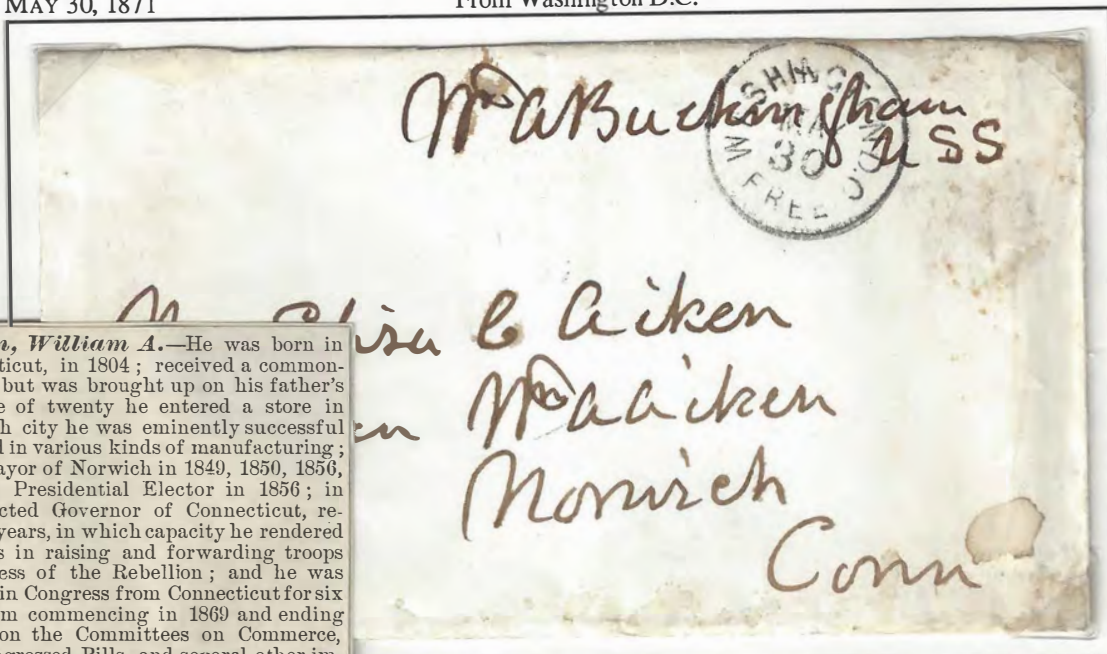 MAY 30, 1871
From Washington D.C.
Wm A Buckingham
U S S
WASHINGTON D.C.
MAY
30
FREE
Mrs Eliza C Aiken
Wm A Aiken
Norwich
Conn
n, William A.—He was born in
ticut, in 1804; received a common-
but was brought up on his father's
e of twenty he entered a store in
h city he was eminently successful
d in various kinds of manufacturing;
ayor of Norwich in 1849, 1850, 1856,
Presidential Elector in 1856; in
cted Governor of Connecticut, re-
years, in which capacity he rendered
s in raising and forwarding troops
ess of the Rebellion; and he was
in Congress from Connecticut for six
m commencing in 1869 and ending
on the Committees on Commerce,
grossed Bills, and several other im-